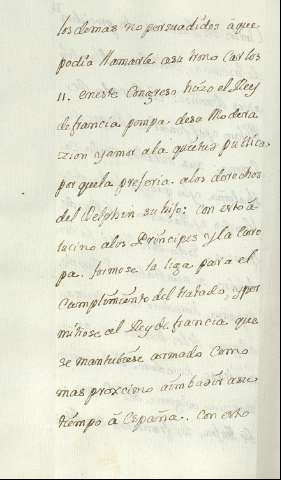 los demas no persuadidos â que
podia llamarle a su trono Carlos
II. en este Congreso hizo el Rey
de francia pompa de su Modera
zion y amor a la quietud publica,
por que la preferia a los derechos
del Delphin su hijo: con esto â
lucino a los Principes y la Euro
pa. formose la liga para el
Cumplimiento del tratado, y per
mitiose al Rey de francia que
se mantubiese armado como
mas proxcimo a imbadir a su
tiempo â España. Con esto